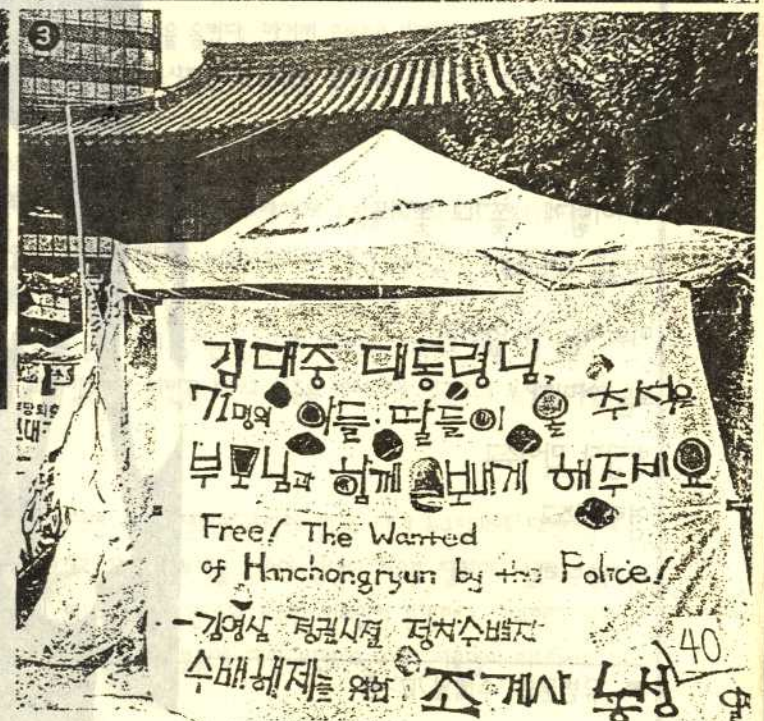 3
김대중 대통령님,
71명의 아들·딸들이 올 추석은
부모님과 함께 보내게 해주세요
Free! The Wanted
of Hanchongryun by the Police!
-김영삼 정권시절 정치수배자
수배해제를 위한 조계사 농성
40